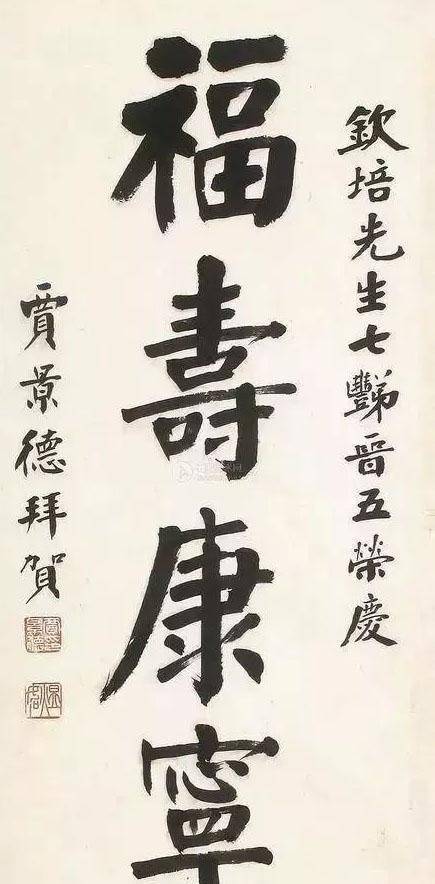 欽培先生七豑晉五榮慶
福壽康寧
賈景德拜賀